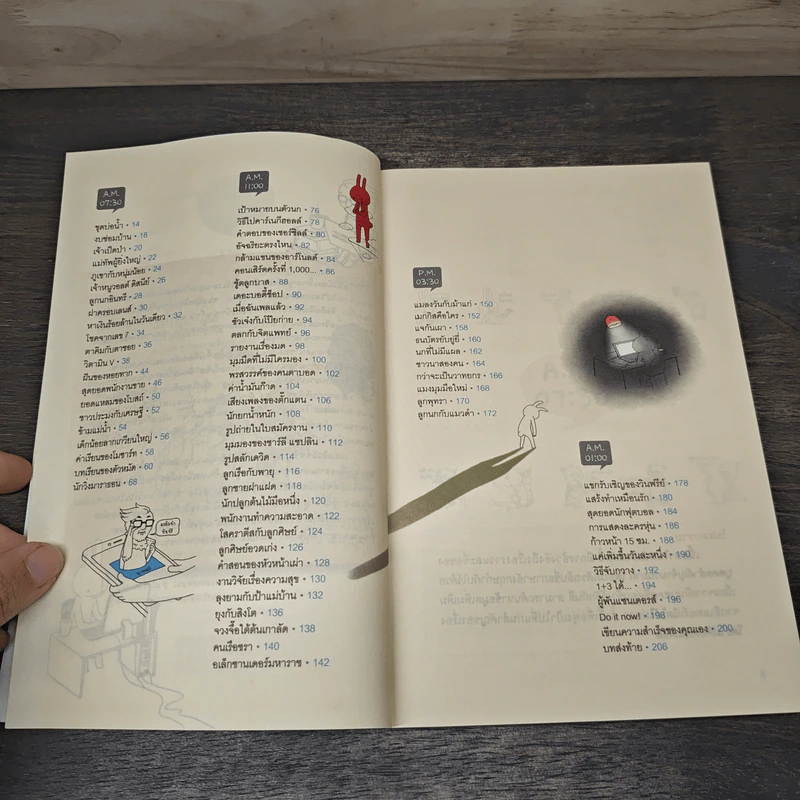 A.M.
07:30
ชุดบ่อน้ำ • 14
งบซ่อมบ้าน • 18
เจ้าเปิดป่า • 20
แม่ทัพผู้ยิ่งใหญ่ • 22
ภูเขากับหนุ่มน้อย • 24
เจ้าหนูวอลต์ ดิสนีย์ • 26
ลูกนกอินทรี • 28
ฝาครอบเลนส์ • 30
หาเงินร้อยล้านในวันเดียว • 32
โชคจากเลข 7 • 34
ตาคิมกับตาซอย • 36
วิตามิน V • 38
ฝันของหอยทาก • 44
สุดยอดพนักงานขาย • 46
ยอดแหลมของโบสถ์ • 50
ชาวประมงกับเศรษฐี • 52
ข้ามแม่น้ำ • 54
เด็กน้อยลากเกวียนใหญ่ • 56
ค่าเรียนของโมซาร์ท • 58
บทเรียนของตัวหมัด • 60
นักวิ่งมาราธอน • 68
A.M.
11:00
เป้าหมายบนตัวนก • 76
วิธีไปคาร์เนกีฮอลล์ • 78
คำตอบของเชอร์ชิลล์ • 80
อัจฉริยะตรงไหน • 82
กล้ามแขนของอาร์โนลด์ • 84
คอนเสิร์ตครั้งที่ 1,000... • 86
ชู้ตลูกบาส • 88
เดอะบอดี้ช็อป • 90
เมื่อฉันเพลแล้ว • 92
ชัวเจ๋งกับโป๊ยก่าย • 94
ตลกกับจิตแพทย์ • 96
รายงานเรื่องมด • 98
มุมมืดที่ไม่มีใครมอง • 100
พรสวรรค์ของคนตาบอด • 102
ค่าน้ำมันก๊าด • 104
เสียงเพลงของตั๊กแตน • 106
นักยกน้ำหนัก • 108
รูปถ่ายในใบสมัครงาน • 110
มุมมองของชาร์ลี แชปลิน • 112
รูปสลักเดวิด • 114
ลูกเรือกับพายุ • 116
ลูกชายฝาแฝด • 118
นักปลูกต้นไม้มือหนึ่ง • 120
พนักงานทำความสะอาด • 122
โสคราตีสกับลูกศิษย์ • 124
ลูกศิษย์อวดเก่ง • 126
คำสอนของหัวหน้าเผ่า • 128
งานวิจัยเรื่องความสุข • 130
ลุงยามกับป้าแม่บ้าน • 132
ยุงกับสิงโต • 136
จวงจื๊อใต้ต้นเกาลัด • 138
คนเรือชรา • 140
อเล็กซานเดอร์มหาราช • 142
P.M.
03:30
แมลงวันกับม้าแก่ • 150
เมกกิสคือใคร • 152
แจกันเผา • 158
ธนบัตรยับยู่ยี่ • 160
นกที่ไม่มีแผล • 162
ชาวนาสองคน • 164
กว่าจะเป็นวาทยกร • 166
แมงมุมมือใหม่ • 168
ลูกพุทรา • 170
ลูกนกกับแมวดำ • 172
A.M.
01:00
แขกรับเชิญของวินฟรีย์ • 178
แสร้งทำเหมือนรัก • 180
สุดยอดนักฟุตบอล • 184
การแสดงละครหุ่น • 186
ก้าวหน้า 15 ซม. • 188
แค่เพิ่มขึ้นวันละหนึ่ง • 190
วิธีจับกวาง • 192
1+3 ได้... • 194
ผู้พันแซนเดอรส์ • 196
Do it now! • 198
เขียนความสำเร็จของคุณเอง • 200
บทส่งท้าย • 206